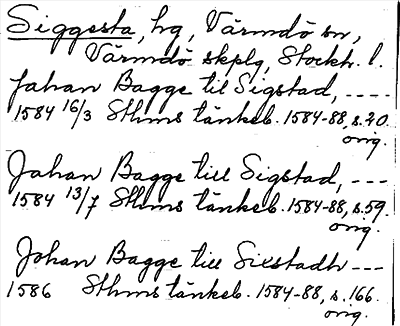 Siggesta, hg, Värmdö sn,
Värmdö skplg, Stockh. l.
Johan Bagge til Sigstad, ----
1584 16/3 Sthms tänkeb. 1584-88, s. 20.
orig.
Johan Bagge till Sigstad, ---
1584 13/7 Sthms tänkeb. 1584-88, s. 59.
orig.
Johan Bagge till Sixstadh ---
1586 Sthms tänkeb. 1584-88, s. 166.
orig.